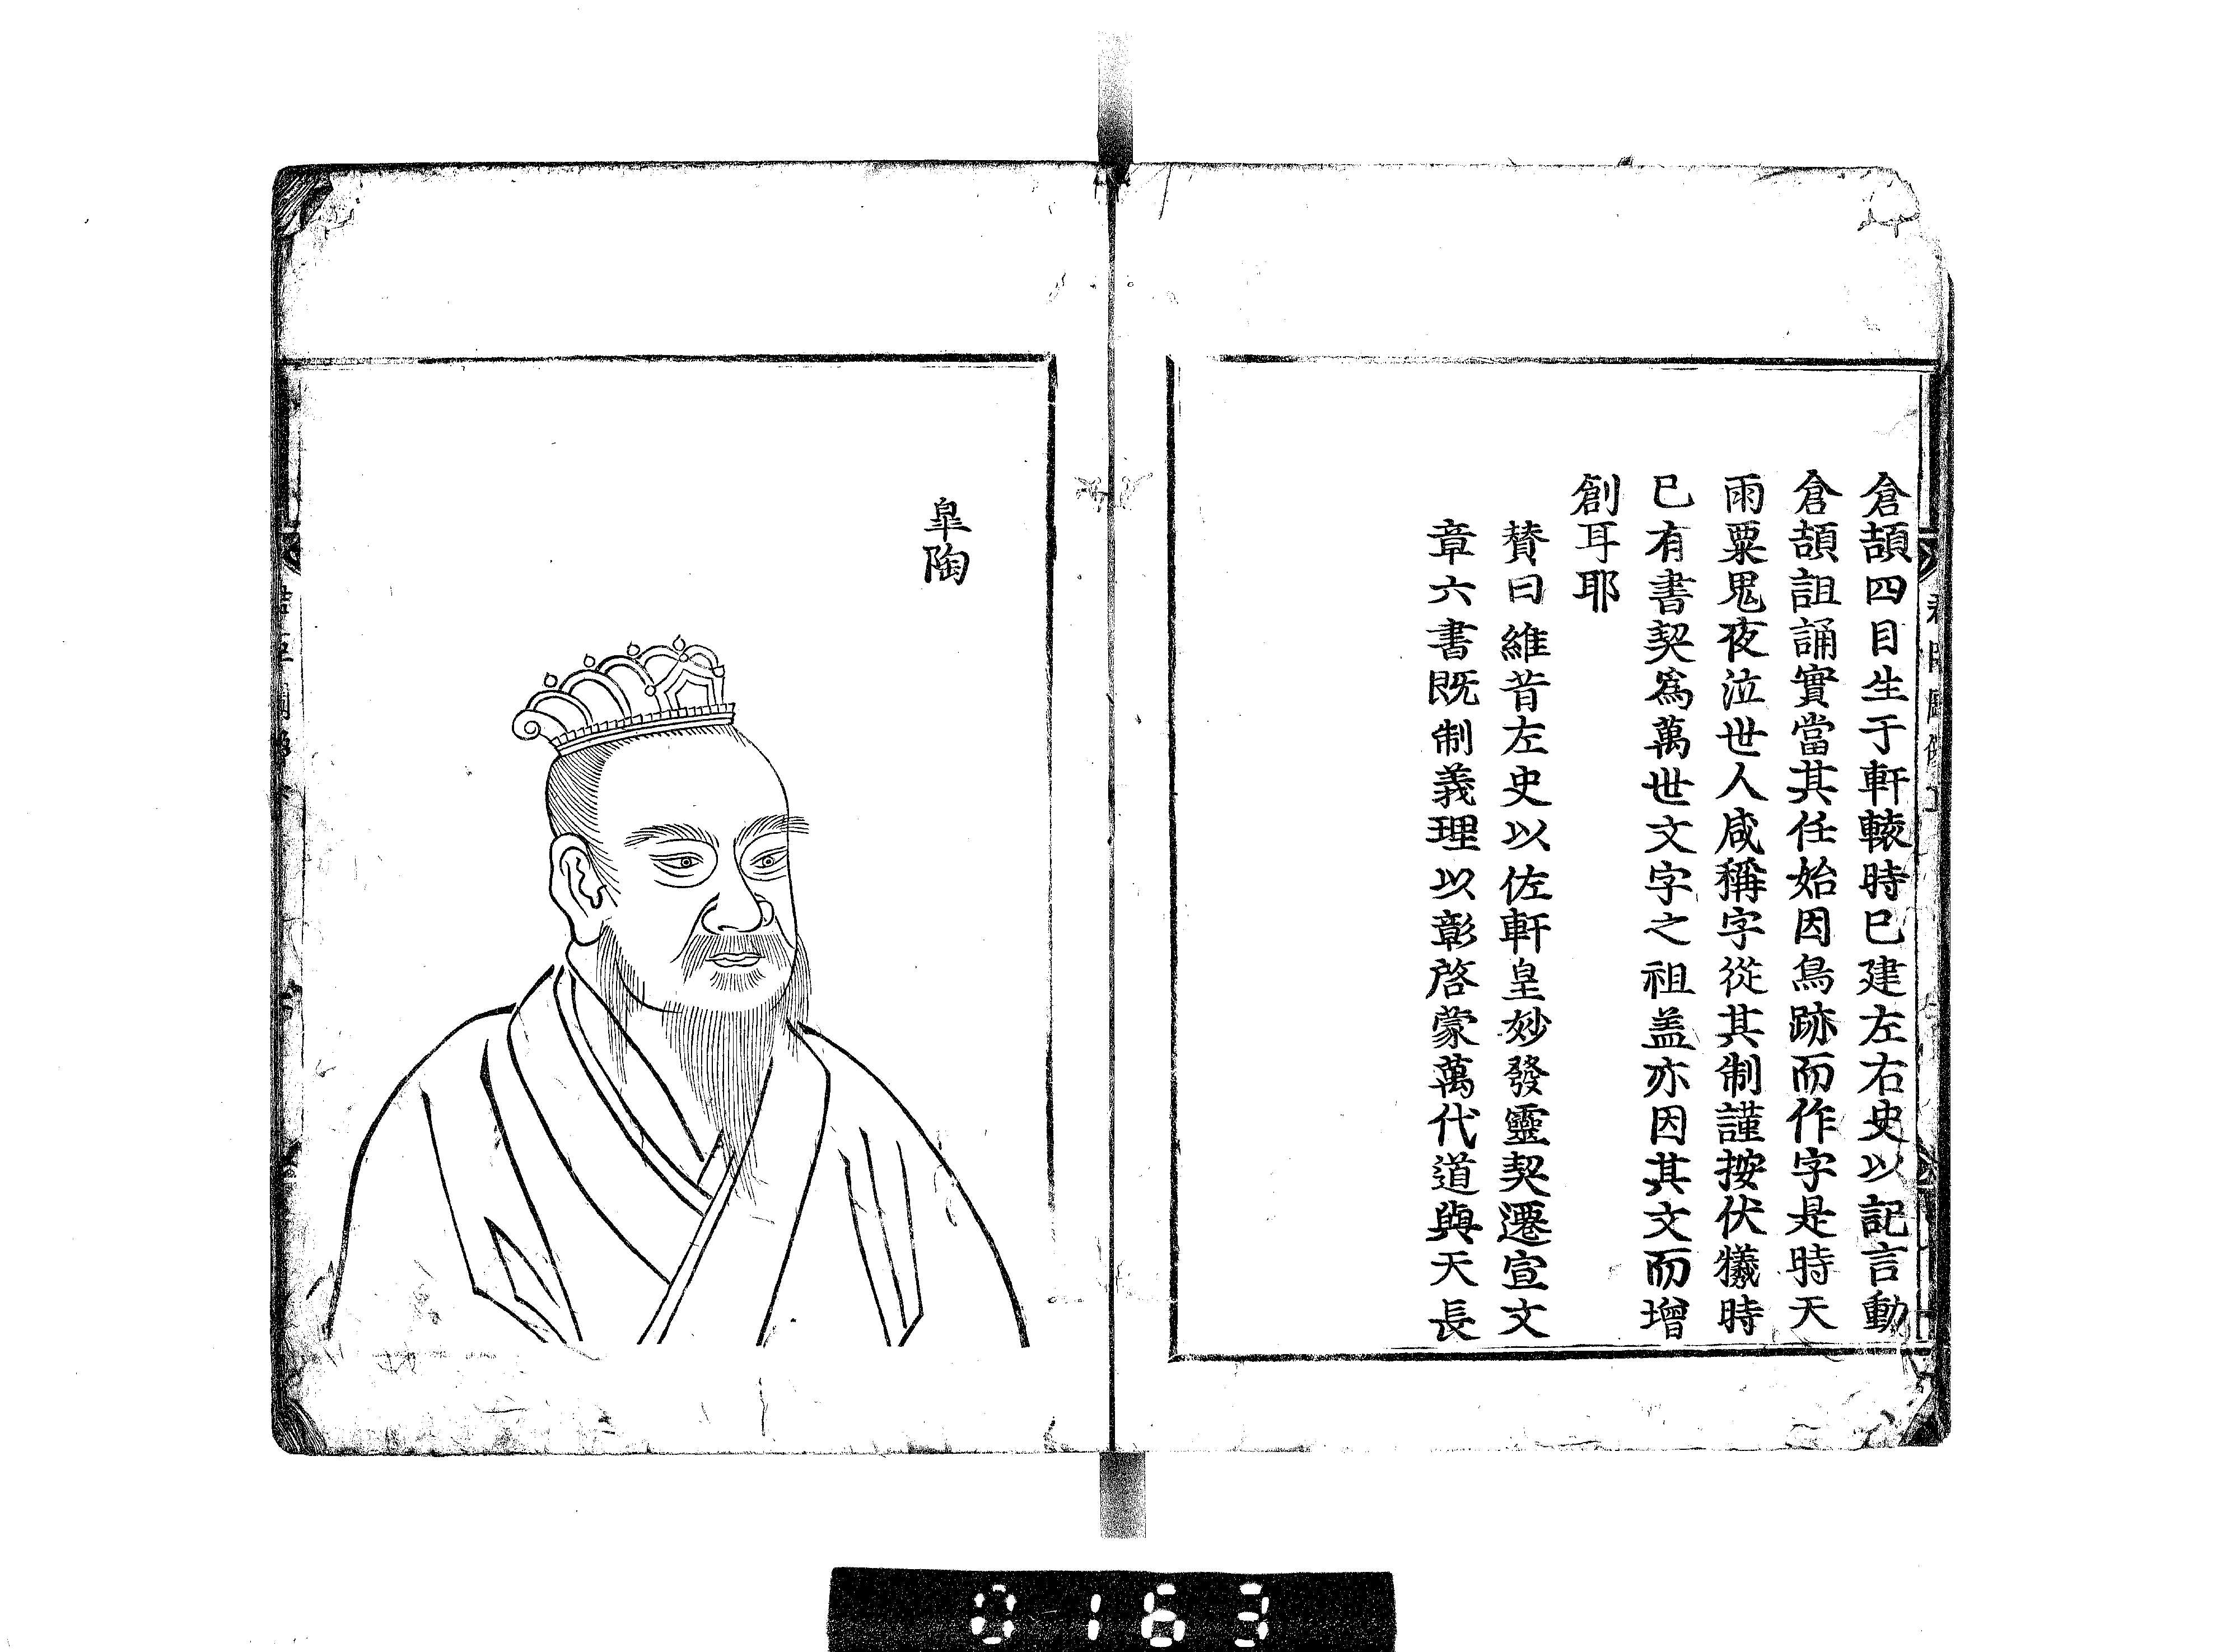 倉頡四目生于軒轅時已建左右史以記言動
倉頡詛誦實當其任始因鳥跡而作字是時天
雨粟鬼夜泣世人咸稱字從其制謹按伏犧時
已有書契爲萬世文字之祖盖亦因其文而增
創耳耶
賛曰維昔左史以佐軒皇妙發靈契遷宣文
章六書既制義理以彰啓蒙萬代道與天長
皐陶
0163